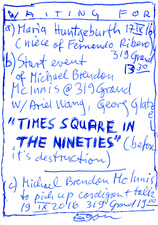 WAITING FOR
a) Maria Huntgeburth 17 IX 16
(niece of Fernando Ribero)
319 Grand
b) Start event 13 30
of Michael Brendon
McInnis @ 319 Grand
w/ Ariel Wang, Georg Glatz
"TIMES SQUARE IN
THE NINETIES" (before
it's destruction)
c) Michael Brendon McInnis
to pick up cardigan + talk
19 IX 2016 319 Grand 19 00